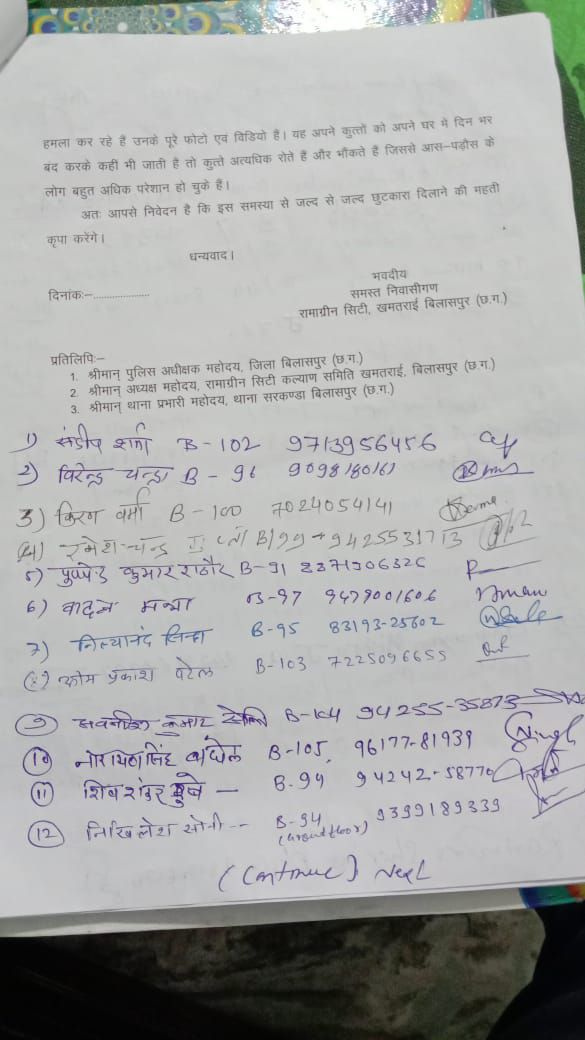 हमला कर रहे हैं उनके पूरे फोटो एवं विडियो है। यह अपने कुत्तों को अपने घर में दिन भर
बंद करके कहीं भी जाती है तो कुत्ते अत्यधिक रोते हैं और भौंकते हैं जिससे आस–पड़ौस के
लोग बहुत अधिक परेशान हो चुके हैं।
अतः आपसे निवेदन है कि इस समस्या से जल्द से जल्द छुटकारा दिलाने की महती
कृपा करेंगे।
धन्यवाद।
भवदीय
दिनांक:–....................
समस्त निवासीगण
रामाग्रीन सिटी, खमतराई बिलासपुर (छ.ग.)
प्रतिलिपि:–
1. श्रीमान् पुलिस अधीक्षक महोदय, जिला बिलासपुर (छ.ग.)
2. श्रीमान् अध्यक्ष महोदय, रामाग्रीन सिटी कल्याण समिति खमतराई, बिलासपुर (छ.ग.)
3. श्रीमान् थाना प्रभारी महोदय, थाना सरकण्डा बिलासपुर (छ.ग.)
1) संदीप शर्मा B-102 9713956456
2) विरेन्द्र चन्द्रा B-96 9098180161
3) किरण वर्मा B-100 7024054141 Verma
(4) रमेश-चन्द्र B/99 9425531713
5) कुमार राठौर B-91
6) B-97 9479001606
7) नित्यानंद सिन्हा B-95 83193-25602
(8) ओम प्रकाश पटेल B-103 7225096655
(9) कुमार B-104 94255-35873
(10) B-105, 96177-81939 Singh
(11) शिव शंकर दुबे — B-94 94242-58770
(12) निखिलेश सोनी -- B-94 9399189339
(Ground floor)
(Continue) Next